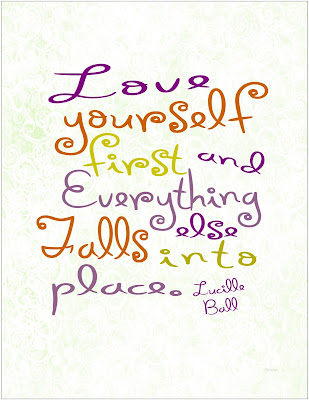 Love
yourself
first and
Everything
Falls else
into
place. Lucille
Ball